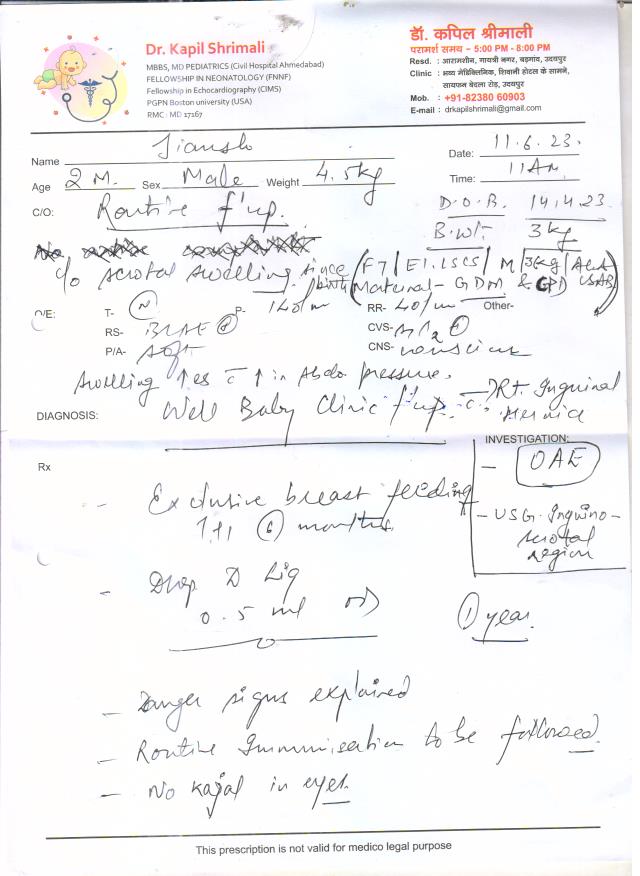 Dr. Kapil Shrimali
MBBS, MD PEDIATRICS (Civil Hospital Ahmedabad)
FELLOWSHIP IN NEONATOLOGY (FNNF)
Fellowship in Echocardiography (CIMS)
PGPN Boston university (USA)
RMC: MD 17167
डॉ. कपिल श्रीमाली
परामर्श समय - 5:00 PM - 8:00 PM
Resd. : आरामशीन, गायत्री नगर, बड़गांव, उदयपुर
Clinic : भव्य मेडिक्लिनिक, शिवानी होटल के सामने,
सायफन बेदला रोड़, उदयपुर
Mob. : +91-82380 60903
E-mail : drkapilshrimali@gmail.com
Name Jiansh Date: 11.6.23.
Age 2 M. Sex Male Weight 4.5kg Time: 11 Am
C/O: Routine f'up. D.O.B. 14.4.23
B.wt. 3kg
c/o scrotal swelling since birth (FT/El.LSCS/M/3kg/
Maternal - GDM &
O/E: T- N P- 140/m RR- 40/m Other-
RS- BLAE CVS- S1S2
P/A- soft CNS- conscious
swelling ↑es c̄ ↑ in Abdo. pressure.
DIAGNOSIS: Well Baby Clinic f'up c̄ Rt. Inguinal Hernia
INVESTIGATION:
- OAE
- USG. Inguino-
scrotal
region
Rx
- Exclusive breast feeding
till 6 months.
- Drop D Liq
0.5 ml OD 1 year.
- Danger signs explained
- Routine Immunisation to be followed.
- No kajal in eyes.
This prescription is not valid for medico legal purpose